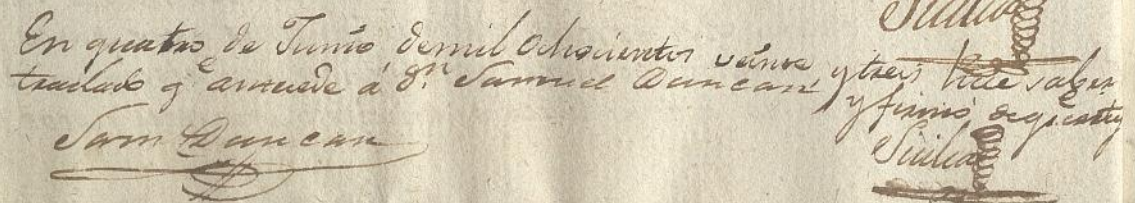 Sicilia
En quatro de Junio de mil ochocientos veinte y tres hice saber
traslado q.e antecede á Dn. Samuel Duncan, y firmó de q.e certif
Sam Duncan
Sicilia